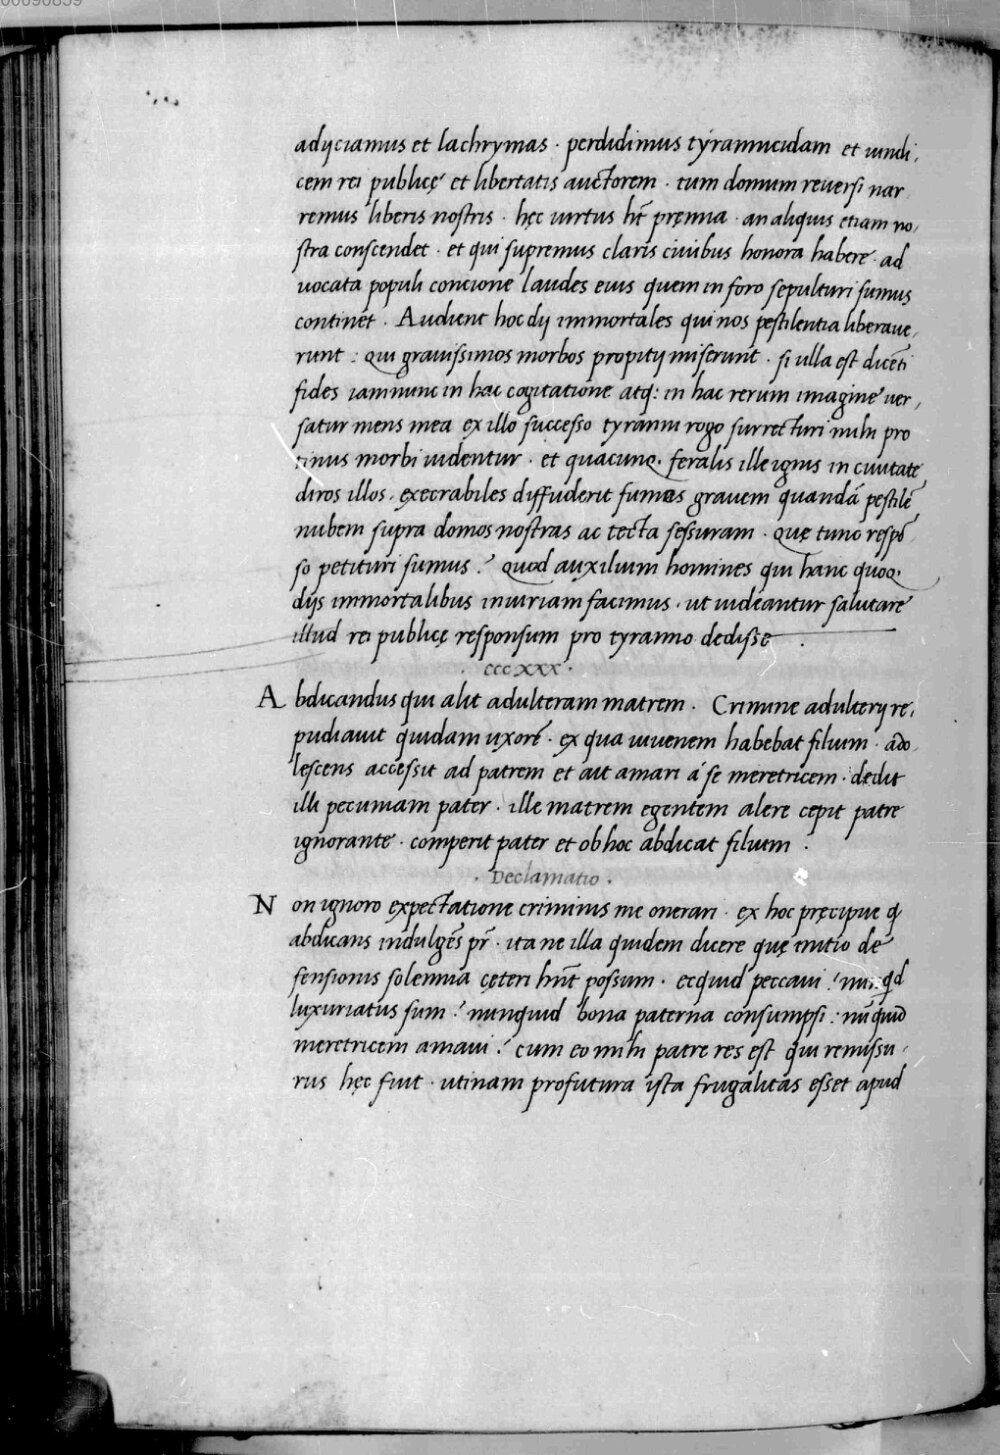 00090859
adijciamus et lachrymas · perdidimus tyrannicidam et uindi,
cem rei publicę et libertatis auctorem · tum domum reuersi nar
remus liberis nostris · hęc uirtus ht̄ pręmia · an aliquis etiam no,
stra conscendet · et qui supremus claris ciuibus honora habere · ad
uocata populi concione laudes eius quem in foro sepulturi sumus
continet · Audient hoc dij immortales qui nos pestilentia liberaue,
runt : qui grauissimos morbos propitij miserunt · si ulla est dicēti
fides iam nunc in hac cogitatione atq: in hac rerum imagine uer,
satur mens mea ex illo successo tyranni rogo surrecturi mihi pro
tinus morbi uidentur · et quacunq. feralis ille ignis in ciuitate
diros illos, execrabiles diffuderit fumos grauem quandā pestilē
nubem supra domos nostras ac tecta sessuram · quę tunc respō
so petituri sumus ? quod auxilium homines qui hanc quoq.
dijs immortalibus iniuriam facimus · ut uideantur salutare
illud rei publicę responsum pro tyranno dedisse ·
· cccxxx ·
Abdicandus qui alit adulteram matrem · Crimine adulterij re,
pudiauit quidam uxorē · ex qua iuuenem habebat filium · ado,
lescens accessit ad patrem et ait amari á se meretricem · dedit
illi pecuniam pater · ille matrem egentem alere cepit patre
ignorante · comperit pater et ob hoc abdicat filium ·
· Declamatio ·
Non ignoro expectatione criminis me onerari · ex hoc pręcipue q̄
abdicans indulgēs pr̄ · ita ne illa quidem dicere quę initio de
fensionis solemnia cęteri hn̄t possum · ecquid peccaui ? nunqd
luxuriatus sum ? nunquid bona paterna consumpsi ? nūquid
meretricem amaui ? cum eo mihi patre res est qui remissu,
rus hęc fuit · utinam profutura ista frugalitas esset apud